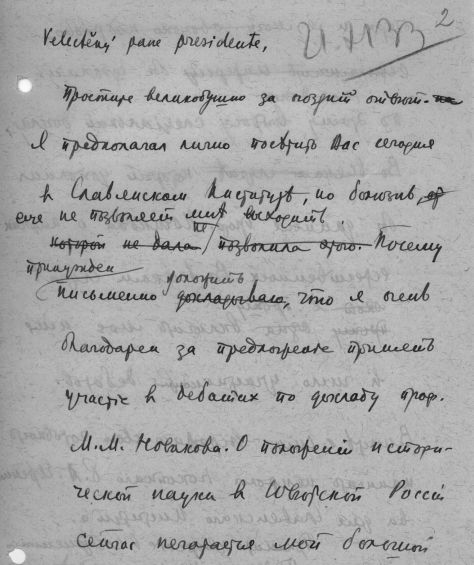 2
Velectěný pane presidente,
Простите великодушно за поздний ответ.
Я предполагал лично посетить Вас сегодня
в Славянском Институтѣ, но болѣзнь,
еще не позволяет мнѣ выходить
которой не дала не позволила этого. Посему
принужден доложить
письменно докладываю, что я очень
благодарен за предложение принять
участіе в дебатах по докладу проф.
М.М. Новикова. О положеніи истори-
ческой науки в Совѣтской Россіи
сейчас печатается мой большой